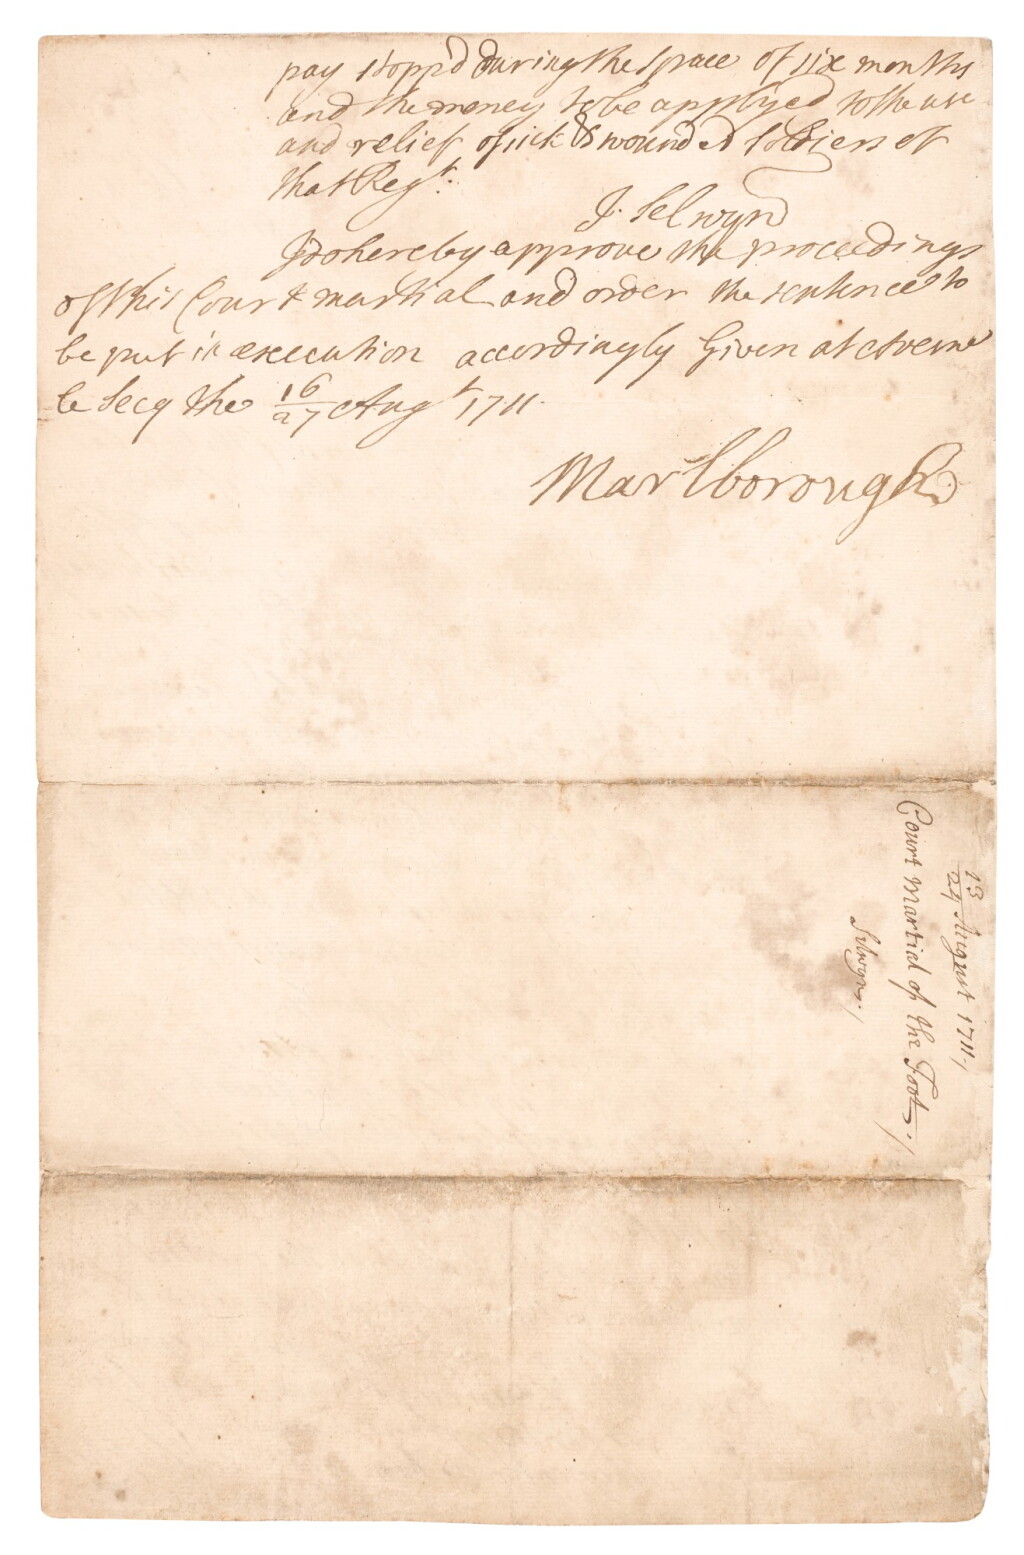 pay stopp'd during the space of six months
and the money to be applyed to the use
and relief of sick & wounded Soldiers of
that Regt:
J: Selwyn
I do hereby approve the proceedings
of this Court martial and order the sentence to
be put in execution accordingly Given at Avesne
le Secq the 16/27 Augt 1711.
Marlborough
13/24 August 1711,
Court Martial of the Foot./
Selwyn./